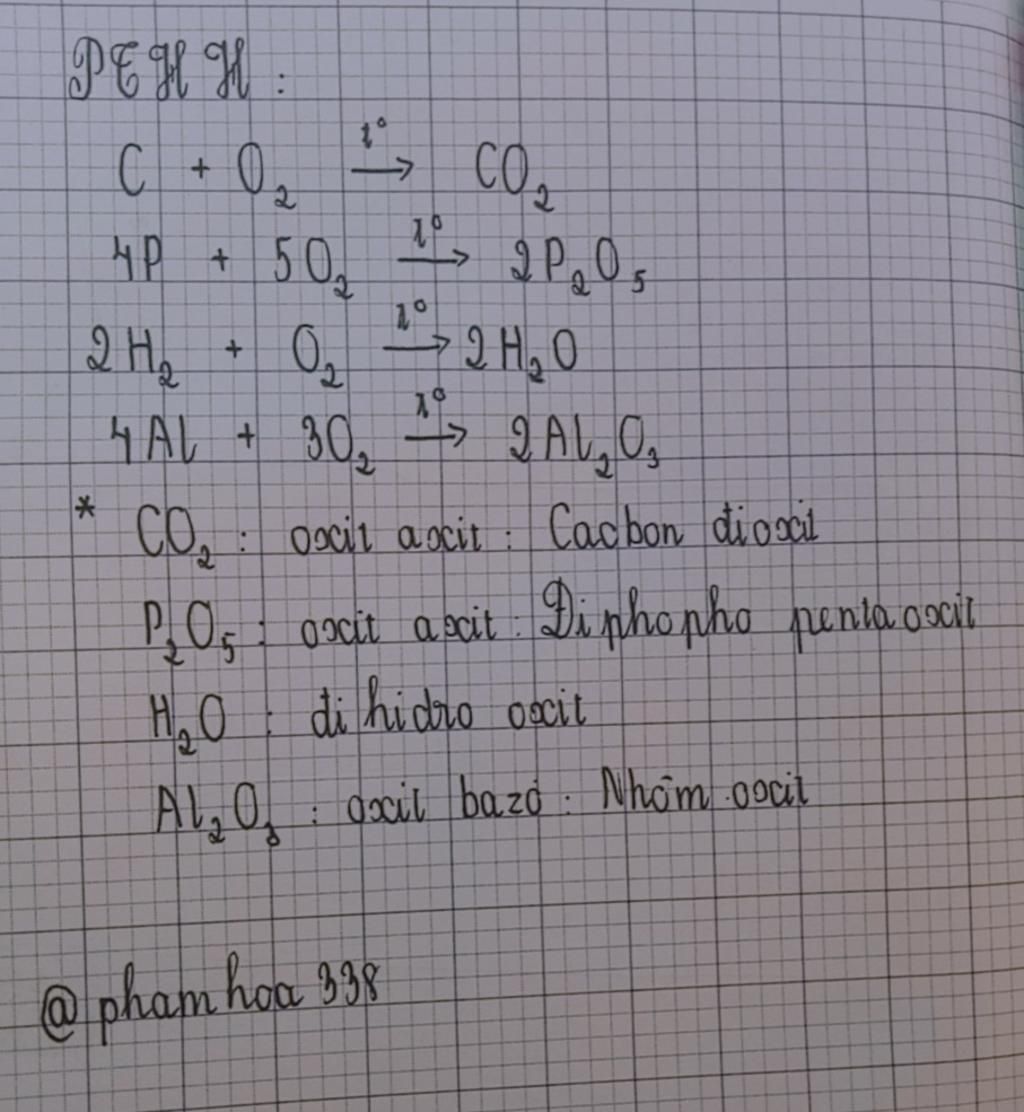 PTHH:
C + O₂ t°→ CO₂
4P + 5O₂ t°→ 2P₂O₅
2H₂ + O₂ t°→ 2H₂O
4Al + 3O₂ t°→ 2Al₂O₃
* CO₂ : oxit axit : Cacbon đioxit
P₂O₅ : oxit axit : Điphopho pentaoxit
H₂O : đi hidro oxit
Al₂O₃ : oxit bazơ : Nhôm oxit
@phamhoa338